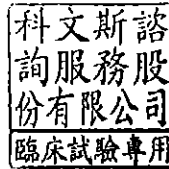 科文斯諮
詢服務股
份有限公司
臨床試驗專用